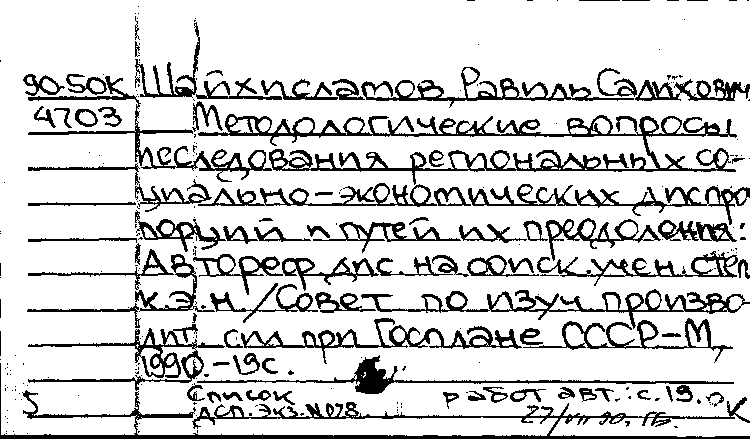 90-50К Шайхисламов, Равиль Салихович
4703 Методологические вопросы
исследования региональных со-
циально-экономических диспро
порций и путей их преодоления:
Автореф. дис. на соиск. учен. степ
к.э.н. / Совет по изуч произво
дит. сил при Госплане СССР-М,
1990.-19с.
Список работ авт.: с.19.
5 ДСП. ЭКЗ. N078. 27/VII 90.